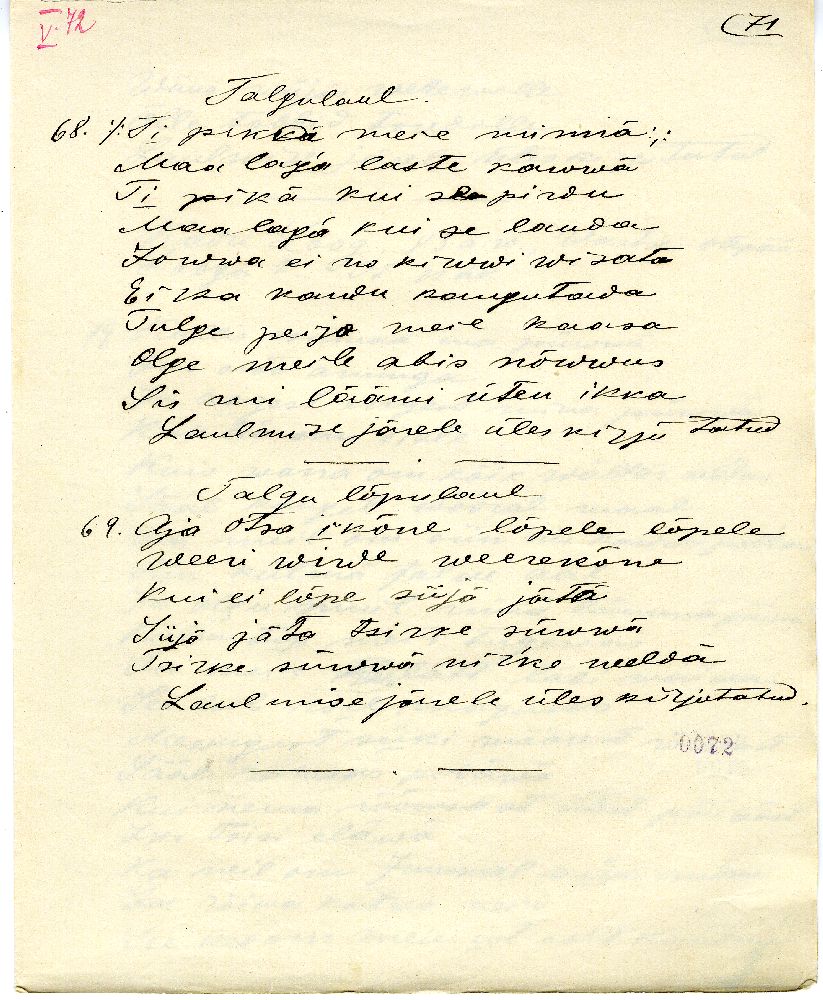 V. 72
71
Talgulaul.
68. /: Ti pikkä meie minnä :/:
Maa lagä laste käwwä
Ti pikä kui se pirdu
Maa lagä kui se lauda
Jowwa ei no kiwwi wisata
Ei ka kandu kangutada
Tulge peijo meile kaasa
Olge meile abis nõwwus
Sis mi läämi üten ikka
Laulmise järele üles kirjutatud
Talgu lõpulaul
69. Aja otsa ikõne lõpele lõpele
Weeri wirde weerekõne
Kui ei lõpe siijä jätä
Siijä jätä tsirke süwwä
Tsirke süwwä nirke neeldä
Laulmise järele üles kirjutatud.
0072